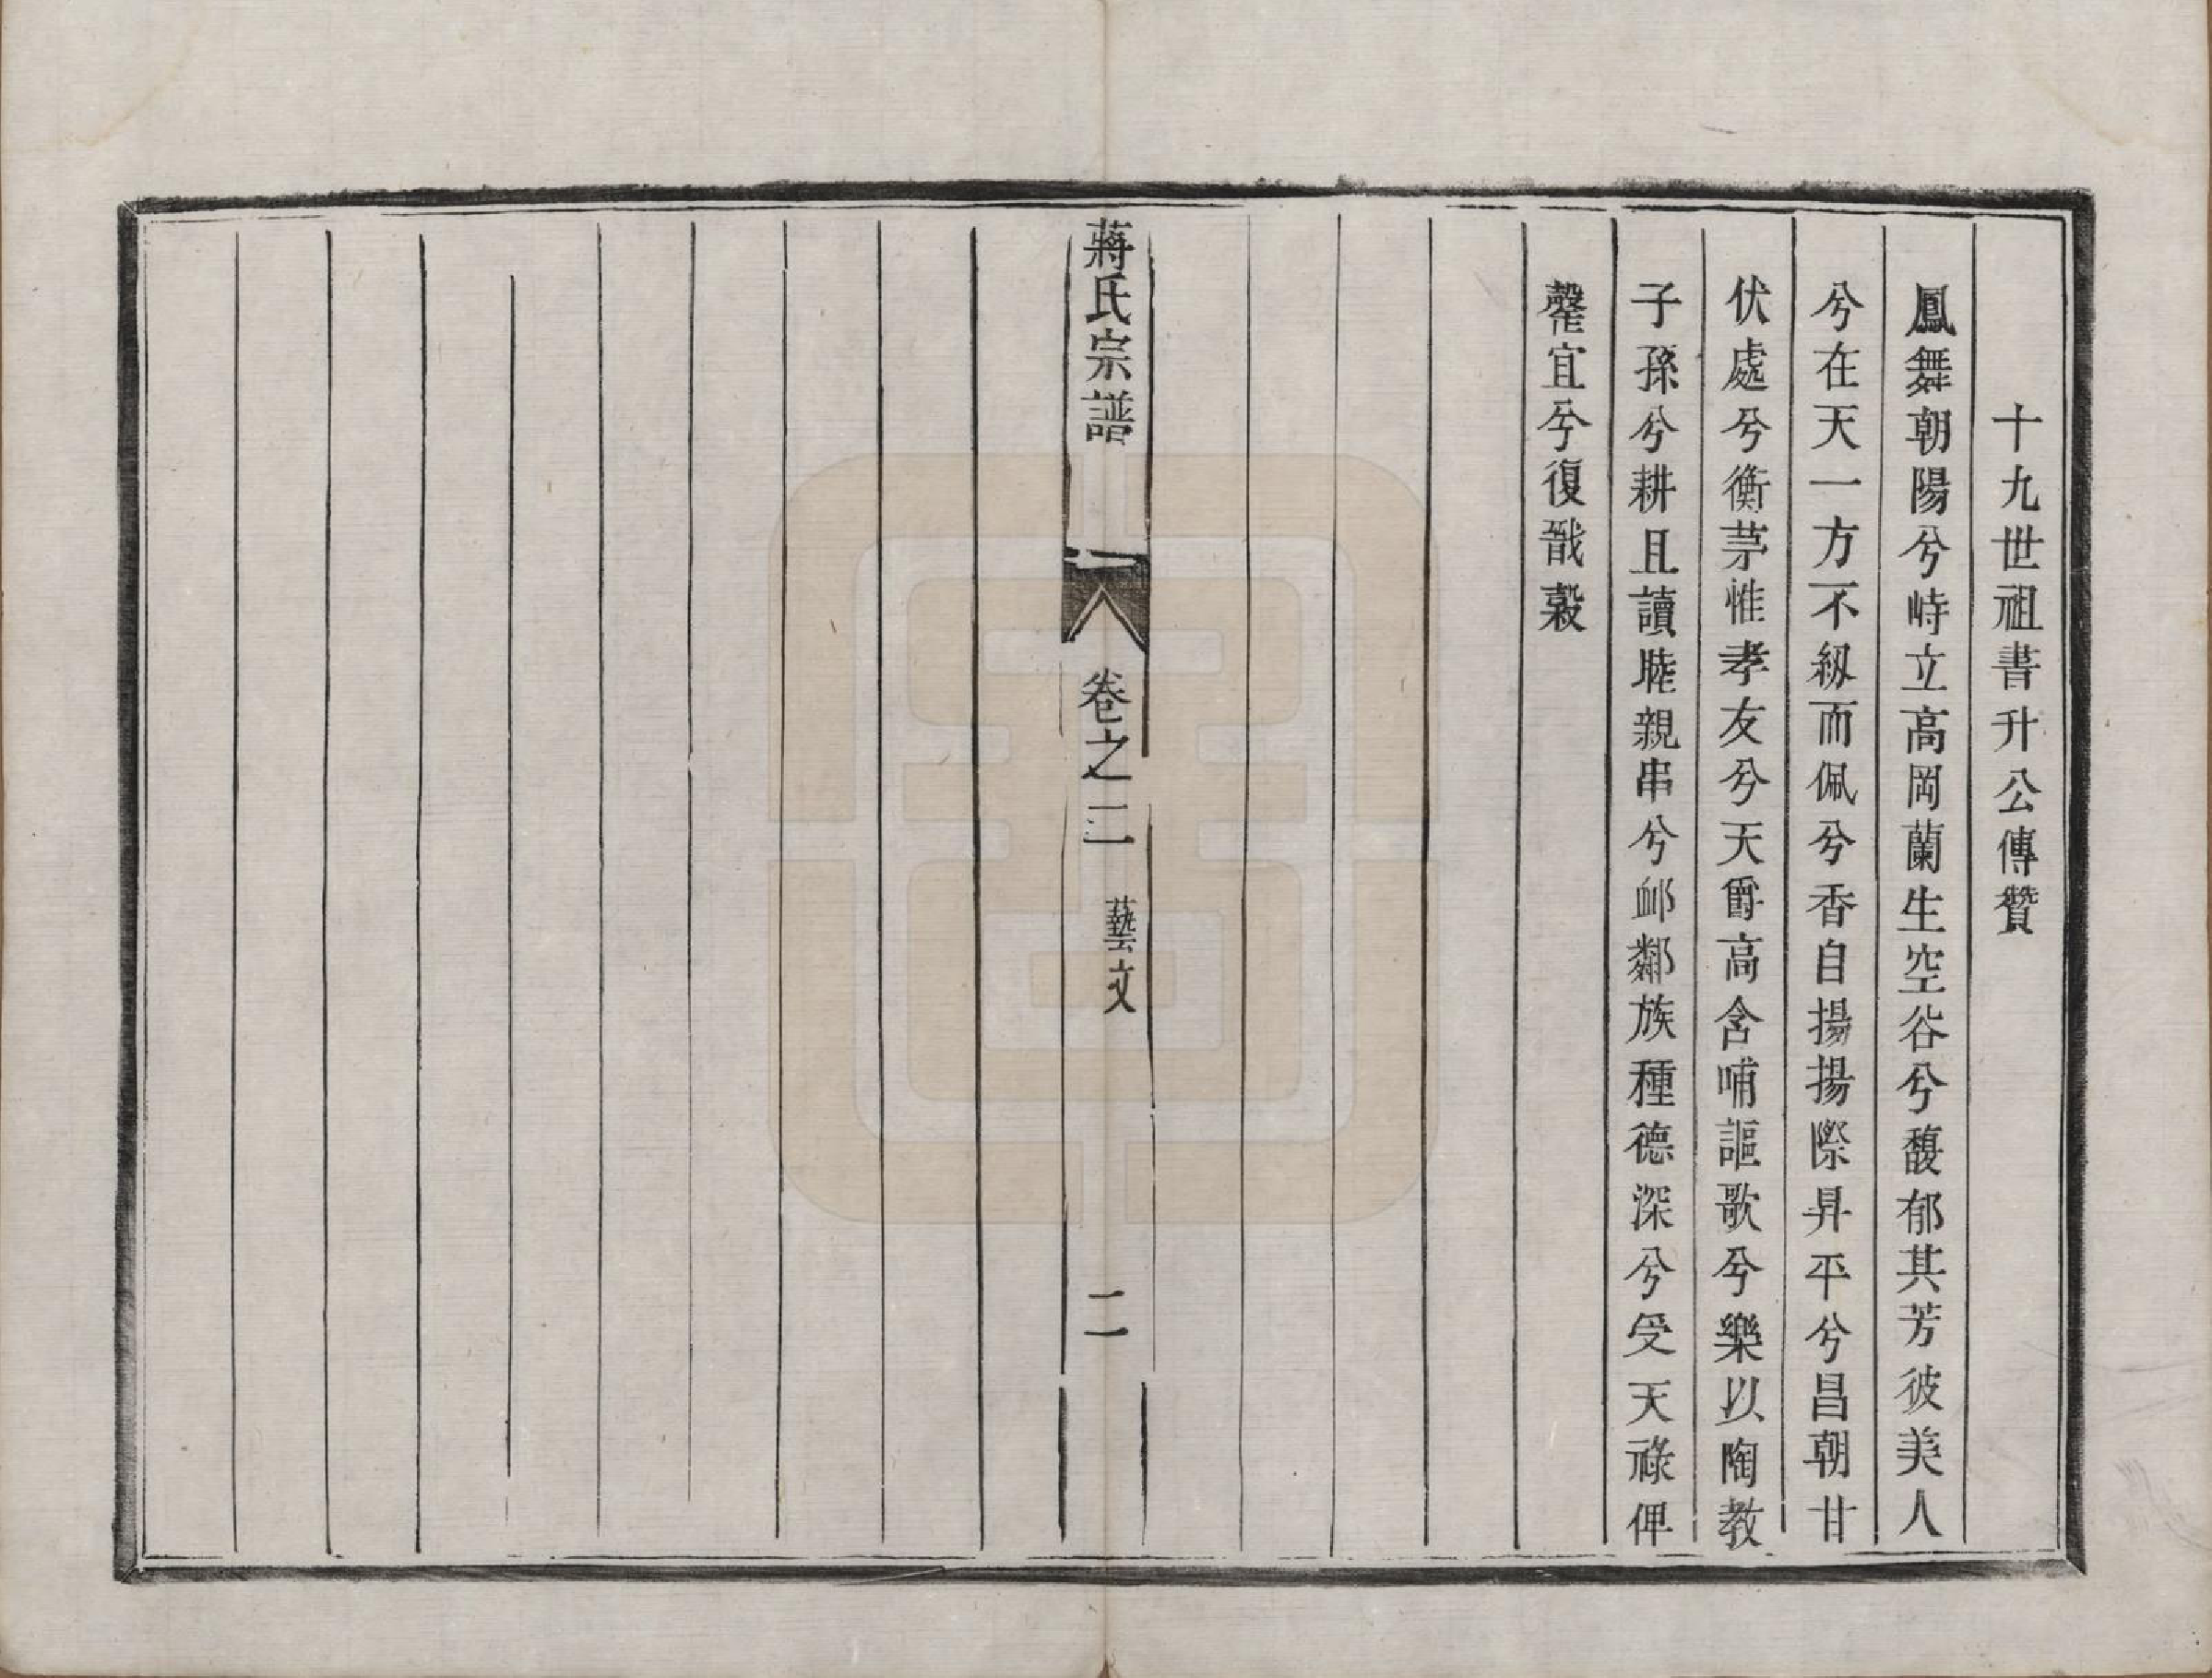 十九世祖書升公傳贊
鳳舞朝陽兮峙立高岡蘭生空谷兮馥郁其芳彼美人
兮在天一方不紉而佩兮香自揚揚際昇平兮昌朝甘
伏處兮衡茅惟孝友兮天爵高含哺謳歌兮樂以陶教
子孫兮耕且讀睦親串兮卹鄰族種德深兮受天祿俾
罄宜兮復戩穀
蔣氏宗譜
卷之二
藝文
二